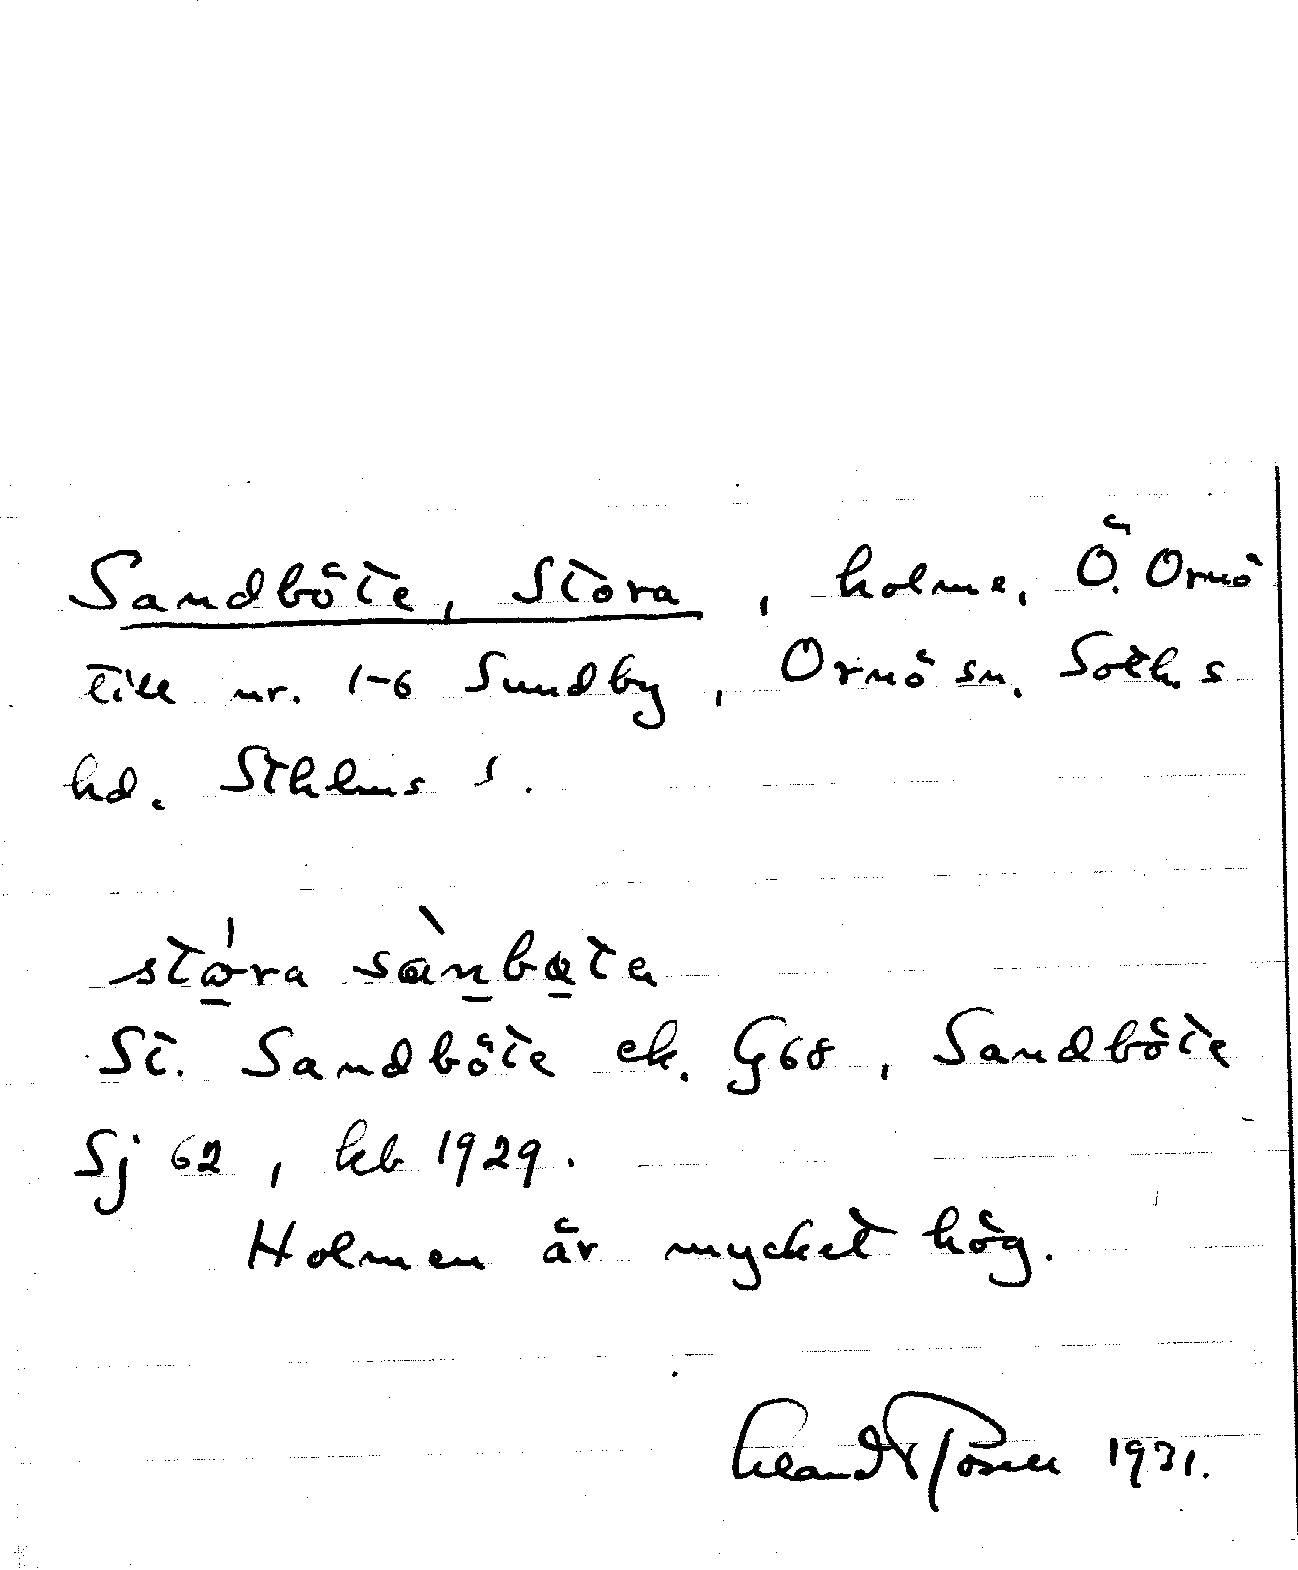 Sandböte, Stora, holme, Ö. Ornö
till nr. 1-6 Sundby, Ornö sn. Soth.s
hd. Sthlms l.
sto̱ra san̠bo̱ta
St. Sandböte ek. G68, Sandböte
Sj 62, kb 1929.
Holmen är mycket hög.
1931.